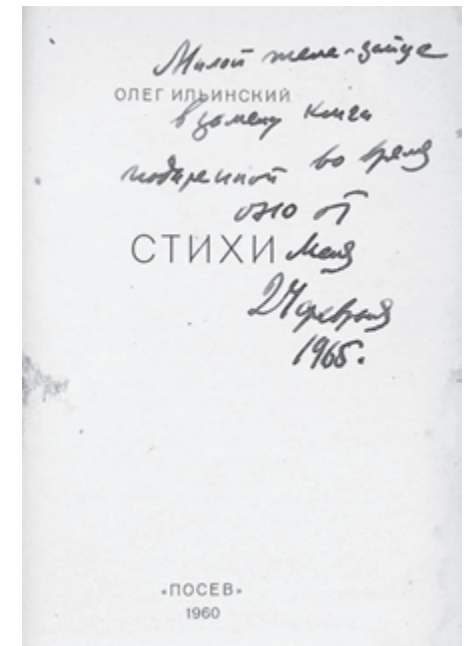 Милой жене-зайце
ОЛЕГ ИЛЬИНСКИЙ
взамену книги
подаренной во время
оно от
СТИХИ меня
24 февраля
1965.
«ПОСЕВ»
1960